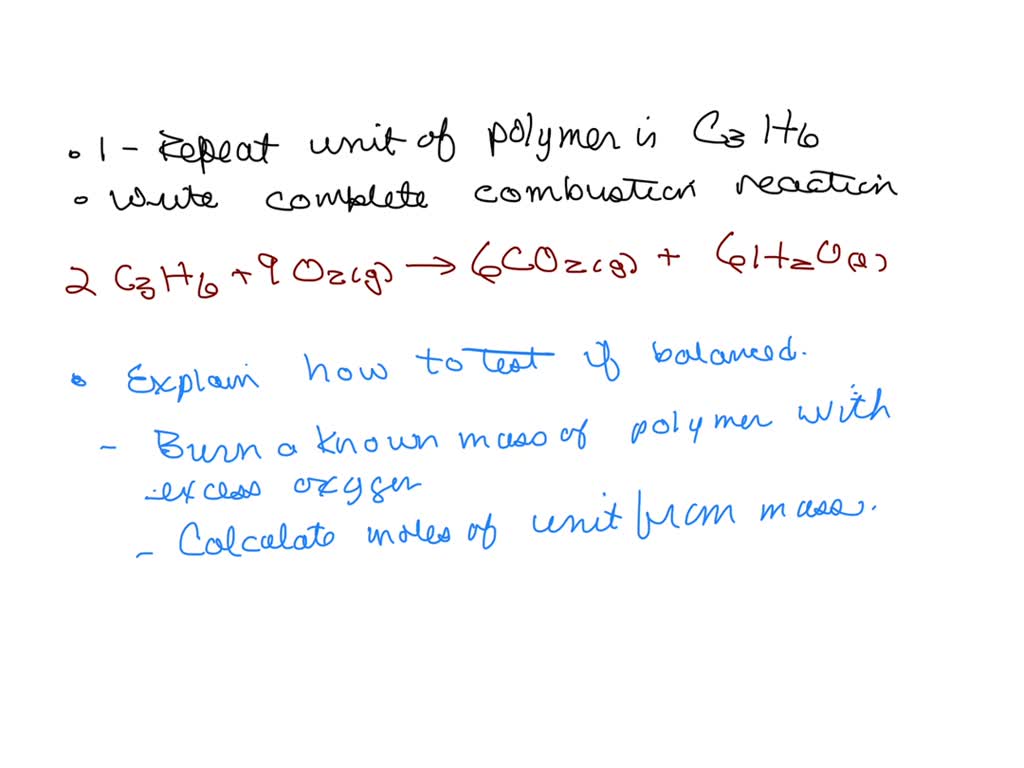 • 1 - Repeat unit of polymer is C3H6
• Write complete combustion reaction
2 C3H6 + 9 O2(g) → 6CO2(g) + 6H2O(g)
• Explain how to test if balanced.
- Burn a known mass of polymer with
excess oxygen
- Calculate moles of unit from mass.